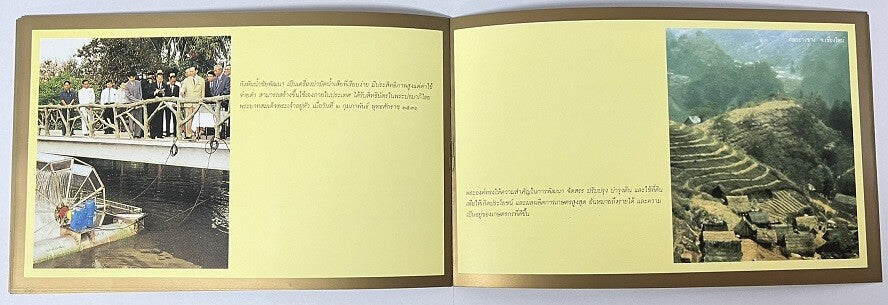 กังหันน้ำชัยพัฒนา เป็นเครื่องบำบัดน้ำเสียที่เรียบง่าย มีประสิทธิภาพสูงแต่ค่าใช้
จ่ายต่ำ สามารถสร้างขึ้นใช้เองภายในประเทศ ได้รับสิทธิบัตรในพระปรมาภิไธย
พระบาทสมเด็จพระเจ้าอยู่หัว เมื่อวันที่ ๒ กุมภาพันธ์ พุทธศักราช ๒๕๓๖
จ.เชียงใหม่
พระองค์ทรงให้ความสำคัญในการพัฒนา จัดสรร ปรับปรุง บำรุงดิน และใช้ที่ดิน
เพื่อให้เกิดประโยชน์ และผลผลิตการเกษตรสูงสุด อันหมายถึงรายได้ และความ
เป็นอยู่ของเกษตรกรที่ดีขึ้น